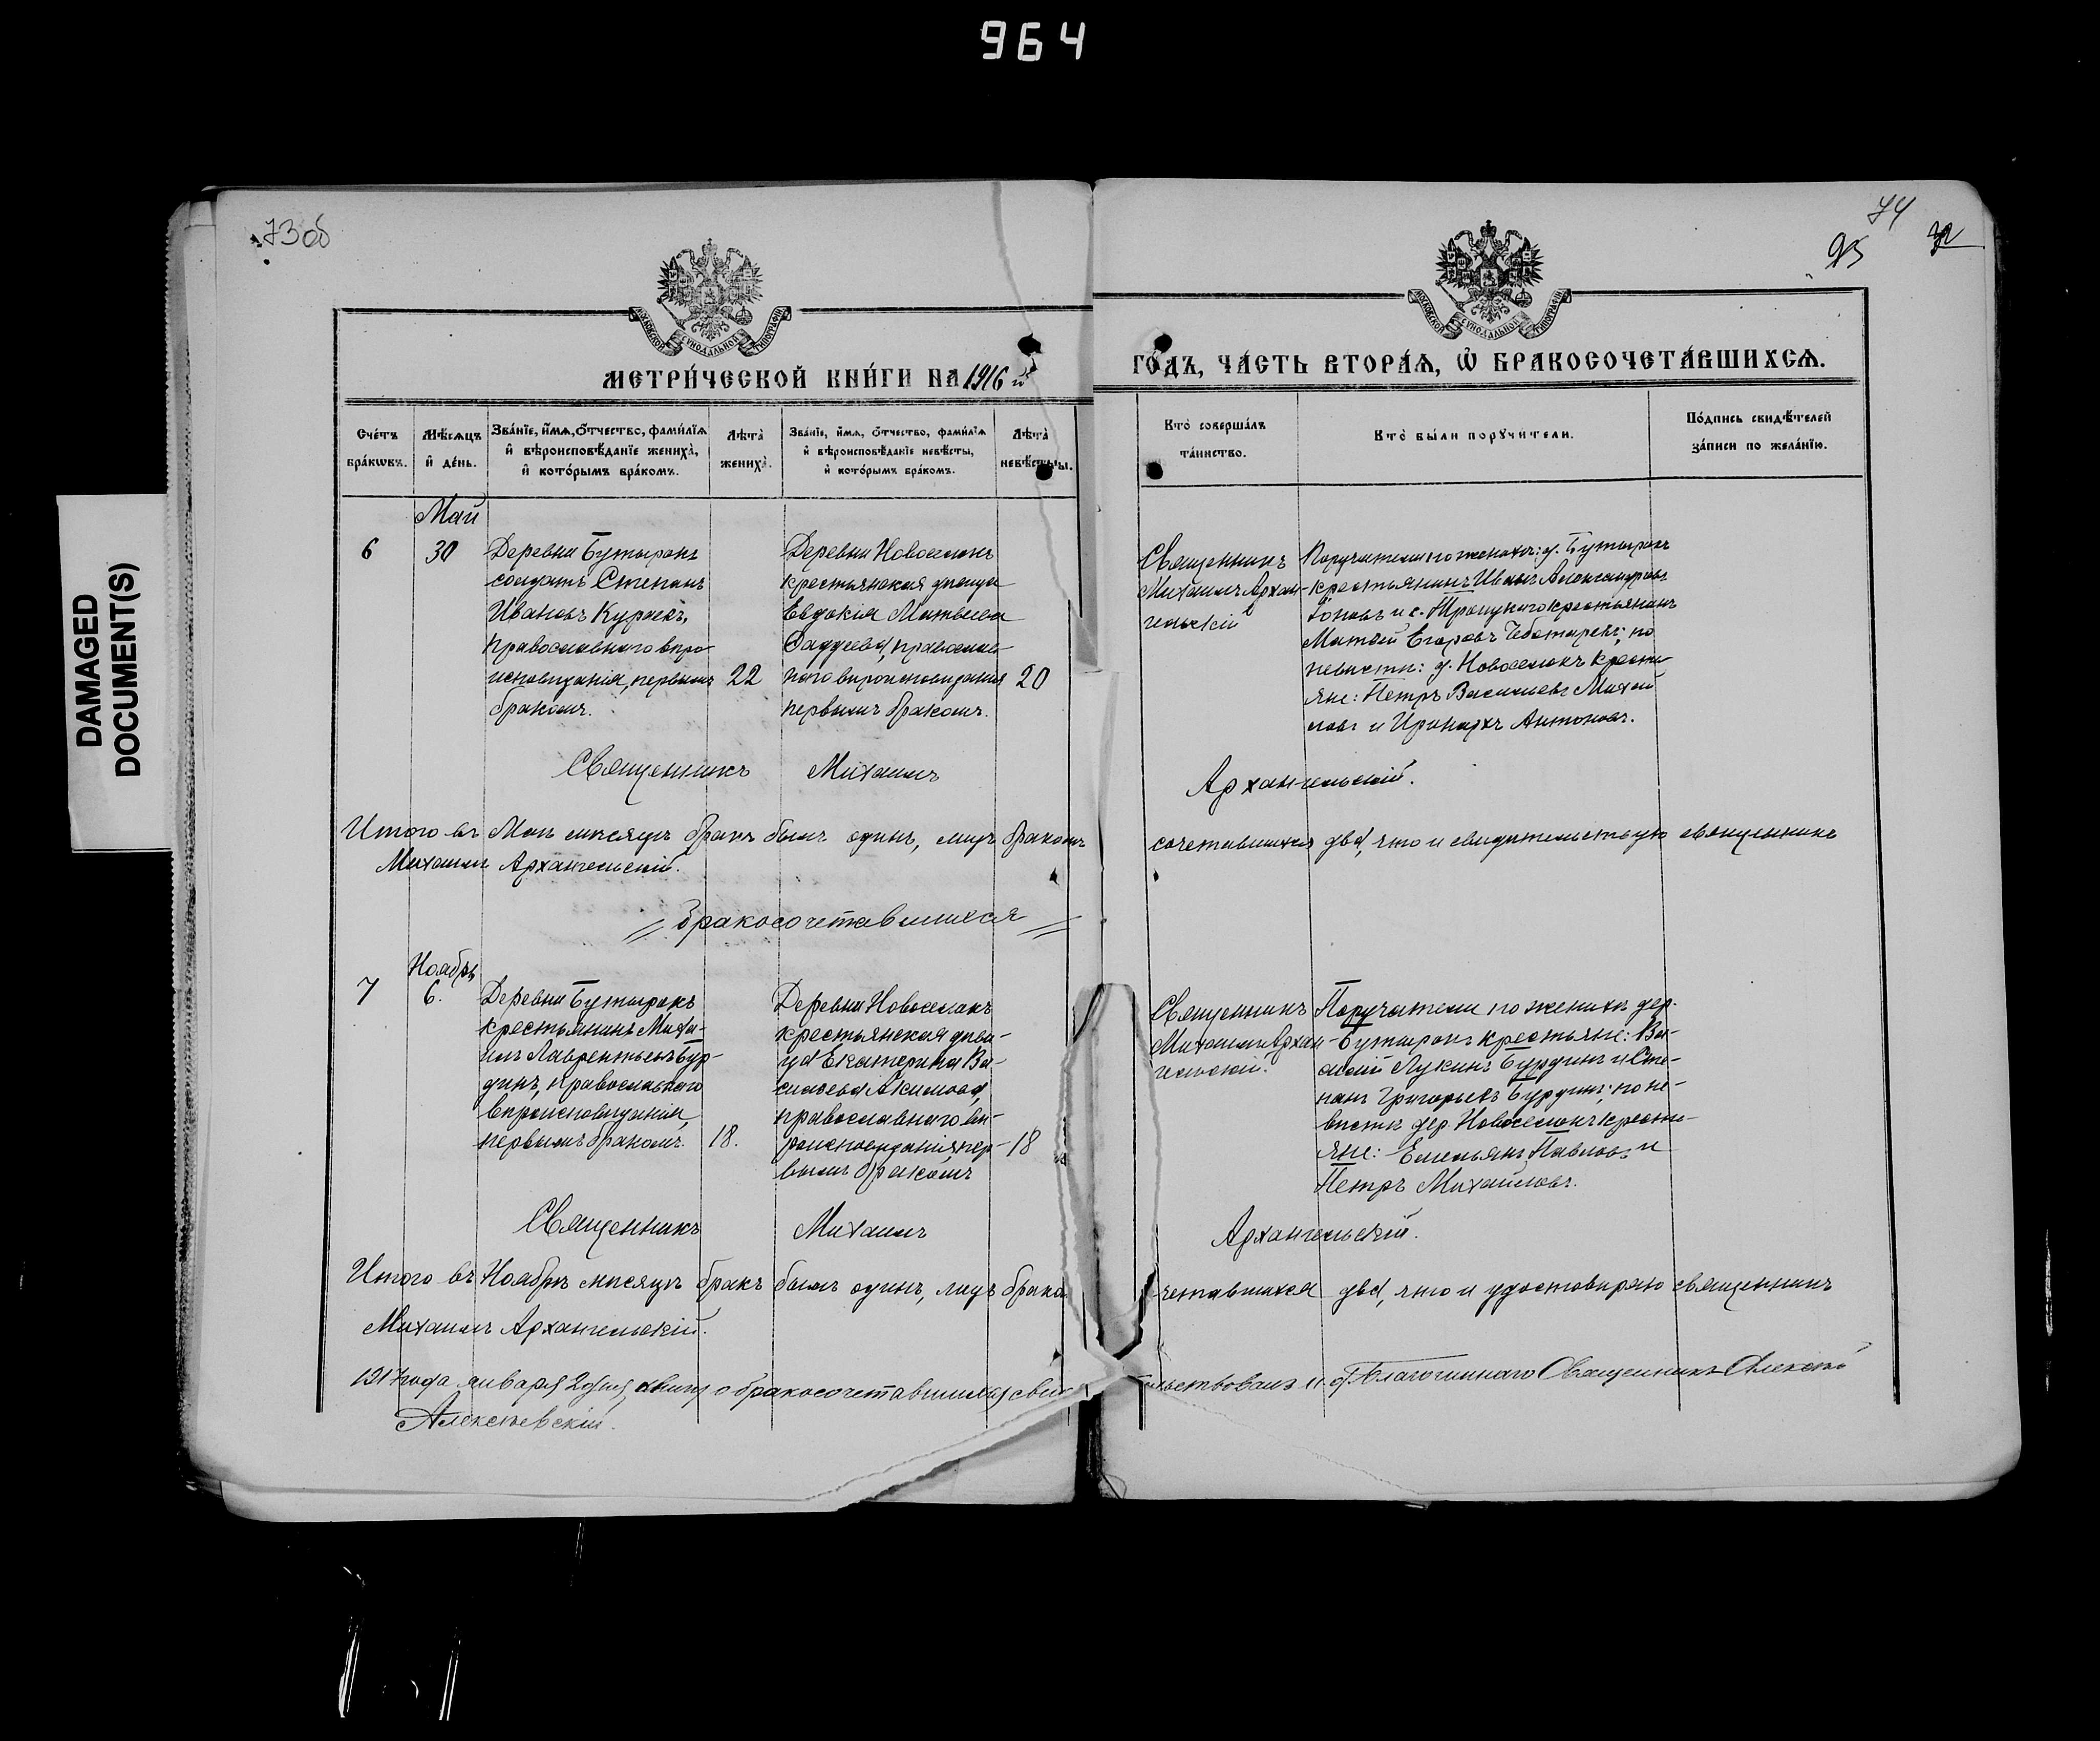 964
DAMAGED
DOCUMENT(S)
73 об
74
95
МОСКОВСКОЙ СУНОДАЛЬНОЙ ТИПОГРАФІИ
МОСКОВСКОЙ СУНОДАЛЬНОЙ ТИПОГРАФІИ
МЕТРИ́ЧЕСКОЙ КНИ́ГИ НА 1916 й
ГО́ДЪ, ЧА́СТЬ ВТОРА́Ѧ, Ѽ БРАКОСОЧЕТА́ВШИХСѦ.
Сче́тъ
бра́кѡвъ.
Мѣ́сѧцъ
и҆ де́нь.
Зва́нїе, и҆́мѧ, ѻ҆́тчество, фами́лїѧ
и҆ вѣроисповѣ́данїе жениха̀,
и҆ кото́рымъ бра́комъ.
Лѣта̀
жениха̀.
Зва́нїе, и҆́мѧ, ѻ҆́тчество, фами́лїѧ
и҆ вѣроисповѣ́данїе невѣ́сты,
и҆ кото́рымъ бра́комъ.
Лѣта̀
невѣ́сты.
Кто̀ соверша́лъ
та́инство.
Кто̀ бы́ли порꙋчи́тели.
По́дпись свидѣ́телей
за́писи по жела́нїю.
Май
6
30
Деревни Бутырокъ
солдатъ Степанъ
Ивановъ Кураевъ,
православнаго вѣро-
исповѣданія, первымъ
бракомъ.
22
Деревни Новоселокъ
крестьянская дѣвица
Евдокія Матвѣева
Фаддеева, православ-
наго вѣроисповѣданія
первымъ бракомъ.
20
Священникъ
Михаилъ Архан-
гельскій
Поручители по женихѣ: д. Бутырокъ
крестьянинъ Иванъ Александровъ
и с. Троицкаго крестьянинъ
Матвѣй Егоровъ Чеботаревъ; по
невѣстѣ: д. Новоселокъ кресть-
яне: Петръ Васильевъ Михай-
ловъ и Иринархъ Антоновъ.
Священникъ Михаилъ Архангельскій.
Итого въ Маѣ мѣсяцѣ бракъ былъ одинъ, лицъ бракомъ сочетавшихся два, что и свидѣтельствую священникъ
Михаилъ Архангельскій.
Бракосочетавшихся
Ноябрь
7
6.
Деревни Бутырокъ
крестьянинъ Миха-
илъ Лаврентьевъ Бур-
динъ, православнаго
вѣроисповѣданія,
первымъ бракомъ.
18.
Деревни Новоселокъ
крестьянская дѣви-
ца Екатерина Ва-
сильева Акимова,
православнаго вѣ-
роисповѣданія, пер-
вымъ бракомъ
18
Священникъ
Михаилъ Архан-
гельскій.
Поручители по женихѣ дер.
Бутырокъ крестьяне: Ва-
силій Лукинъ Бурдинъ и Сте-
панъ Григорьевъ Бурдинъ; по не-
вѣстѣ дер. Новоселокъ кресть-
яне: Емельянъ Павловъ и
Петръ Михайловъ.
Священникъ Михаилъ Архангельскій.
Итого въ Ноябрѣ мѣсяцѣ бракъ былъ одинъ, лицъ брако четавшихся два, что и удостовѣряю священникъ
Михаилъ Архангельскій.
1917 года января 2 дня, книгу о бракосочетавшихся свидѣ тельствовалъ и. д. Благочиннаго Священникъ Алексѣй
Алексѣевскій.